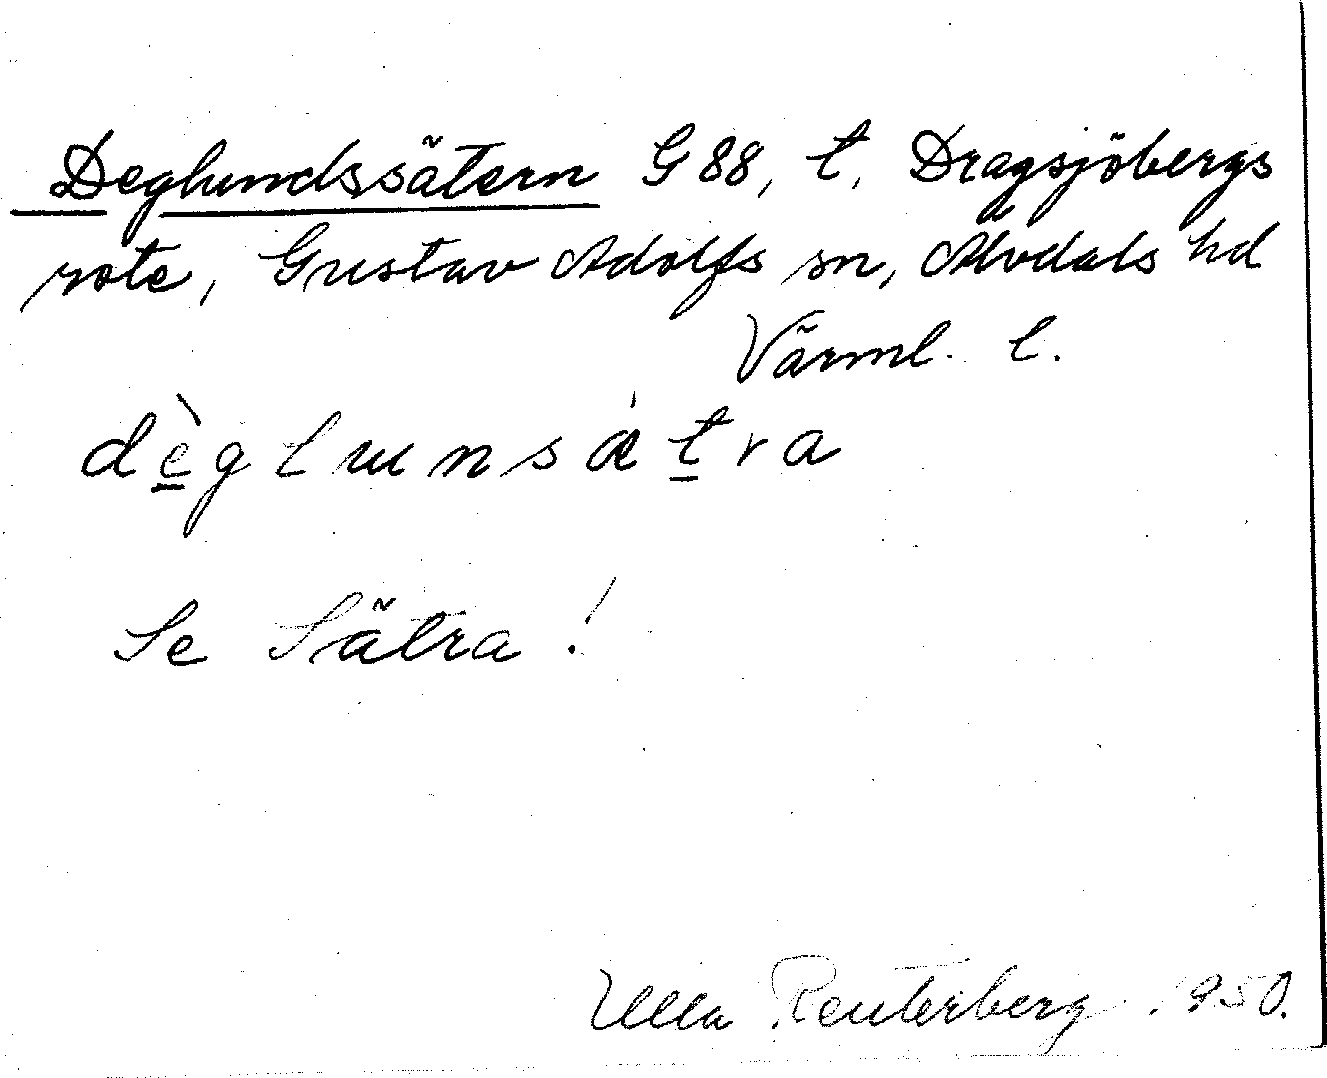 Deglundssätern G 88, t, Dragsjöbergs
rote, Gustav Adolfs sn, Älvdals hd
Värml. l.
dèglunsátra
Se Sätra!
Ulla Reuterberg 1950.